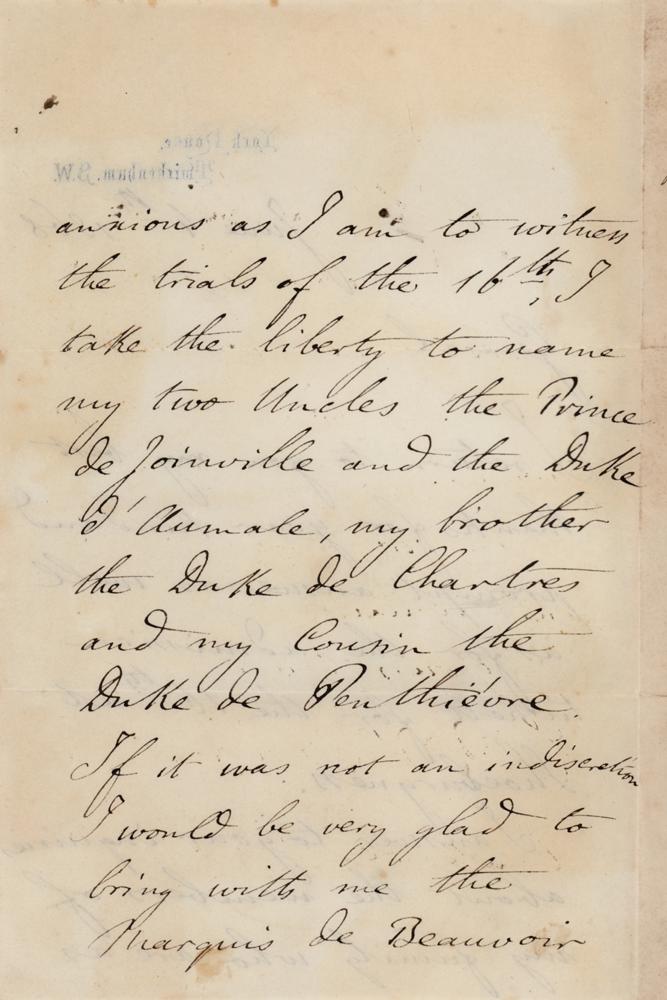 York House,
Twickenham. S.W.
anxious as I am to witness
the trials of the 16th, I
take the liberty to name
my two Uncles the Prince
de Joinville and the Duke
d'Aumale, my brother
the Duke de Chartres
and my Cousin the
Duke de Penthièvre.
If it was not an indiscretion
I would be very glad to
bring with me the
Marquis de Beauvoir